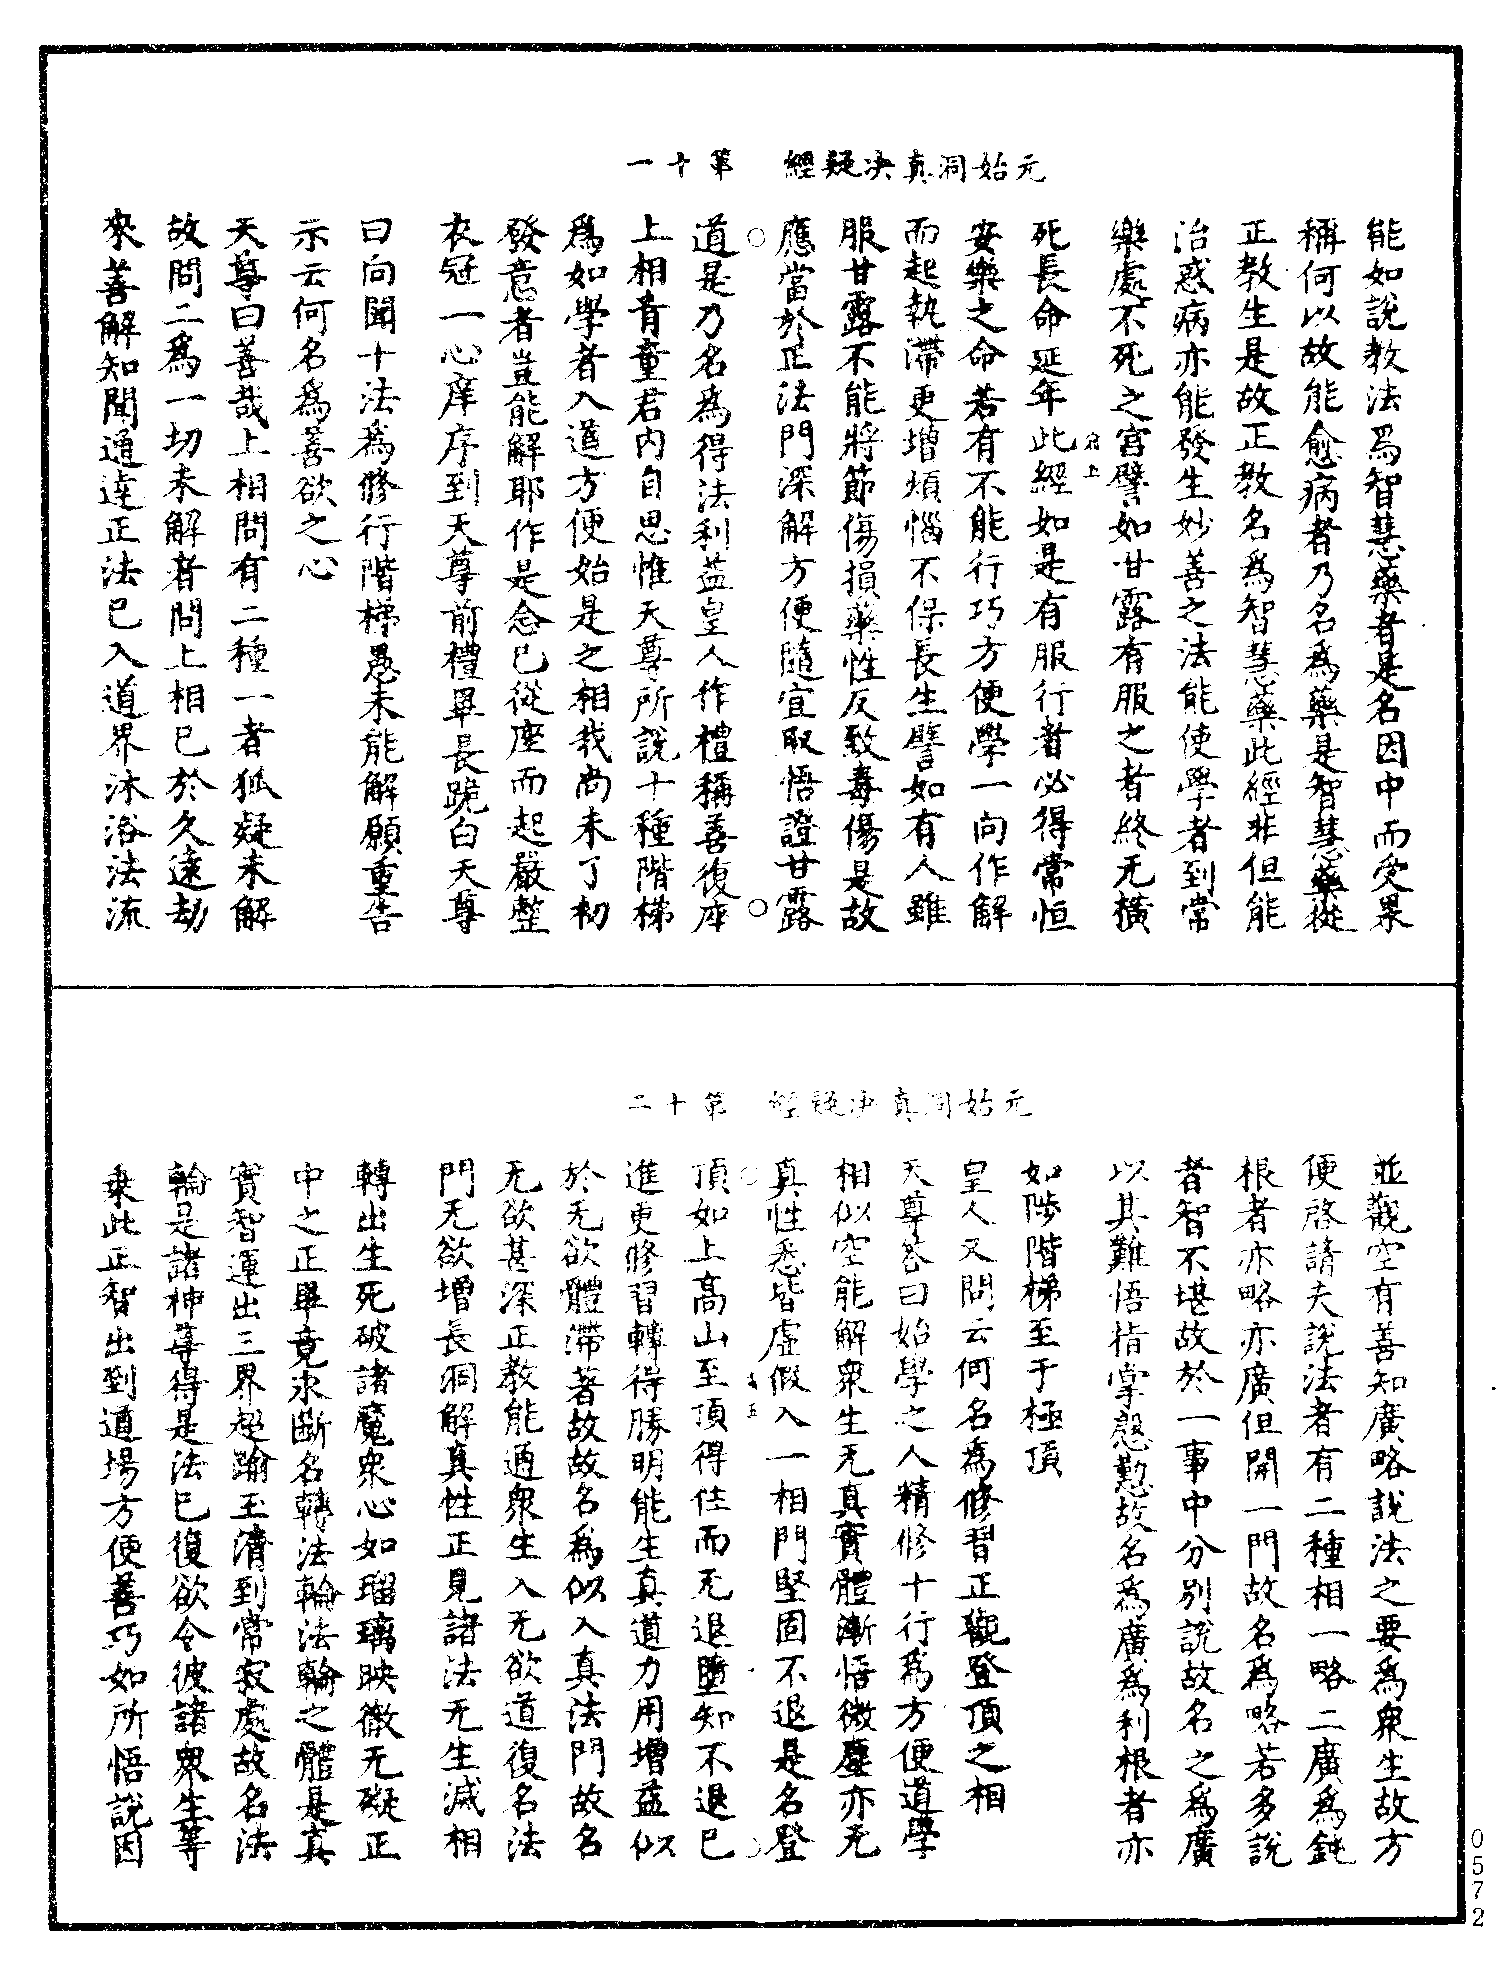 元始洞真決疑經　第十一
能如說教法爲智慧藥者是名因中而受果
稱何以故能愈病者乃名爲藥是智慧藥從
正教生是故正教名爲智慧藥此經非但能
治惑病亦能發生妙善之法能使學者到常
樂處不死之宮譬如甘露有服之者終无橫
死長命延年此經如是有服行者必得常恒
安樂之命若有不能行巧方便學一向作解
而起執滯更增煩惱不保長生譬如有人雖
服甘露不能將節傷損藥性反致毒傷是故
應當於正法門深解方便隨宜取悟證甘露
道是乃名爲得法利益皇人作禮稱善復座
上相青童君內自思惟天尊所說十種階梯
爲如學者入道方便始是之相我尚未了初
發意者豈能解耶作是念已從座而起嚴整
衣冠一心庠序到天尊前禮畢長跪白天尊
曰向聞十法爲修行階梯愚未能解願重告
示云何名爲善欲之心
天尊曰善哉上相問有二種一者狐疑未解
故問二爲一切未解者問上相已於久遠劫
來善解知聞通達正法已入道界沐浴法流
元始洞真決疑經　第十二
並觀空有善知廣略說法之要爲衆生故方
便啓請夫說法者有二種相一略二廣爲鈍
根者亦略亦廣但開一門故名爲略若多說
者智不堪故於一事中分別說故名之爲廣
以其難悟指掌慇懃故名爲廣爲利根者亦
如陟階梯至于極頂
皇人又問云何名爲修習正觀登頂之相
天尊答曰始學之人精修十行爲方便道學
相似空能解衆生无真實體漸悟微塵亦无
真性悉皆虛假入一相門堅固不退是名登
頂如上高山至頂得住而无退墮知不退已
進更修習轉得勝明能生真道力用增益似
於无欲體滯著故故名爲似入真法門故名
无欲甚深正教能通衆生入无欲道復名法
門无欲增長洞解真性正見諸法无生滅相
轉出生死破諸魔衆心如瑠璃映徹无礙正
中之正畢竟永斷名轉法輪法輪之體是真
實智運出三界超踰玉清到常寂處故名法
輪是諸神尊得是法已復欲令彼諸衆生等
乘此正智出到道場方便善巧如所悟說因
0572